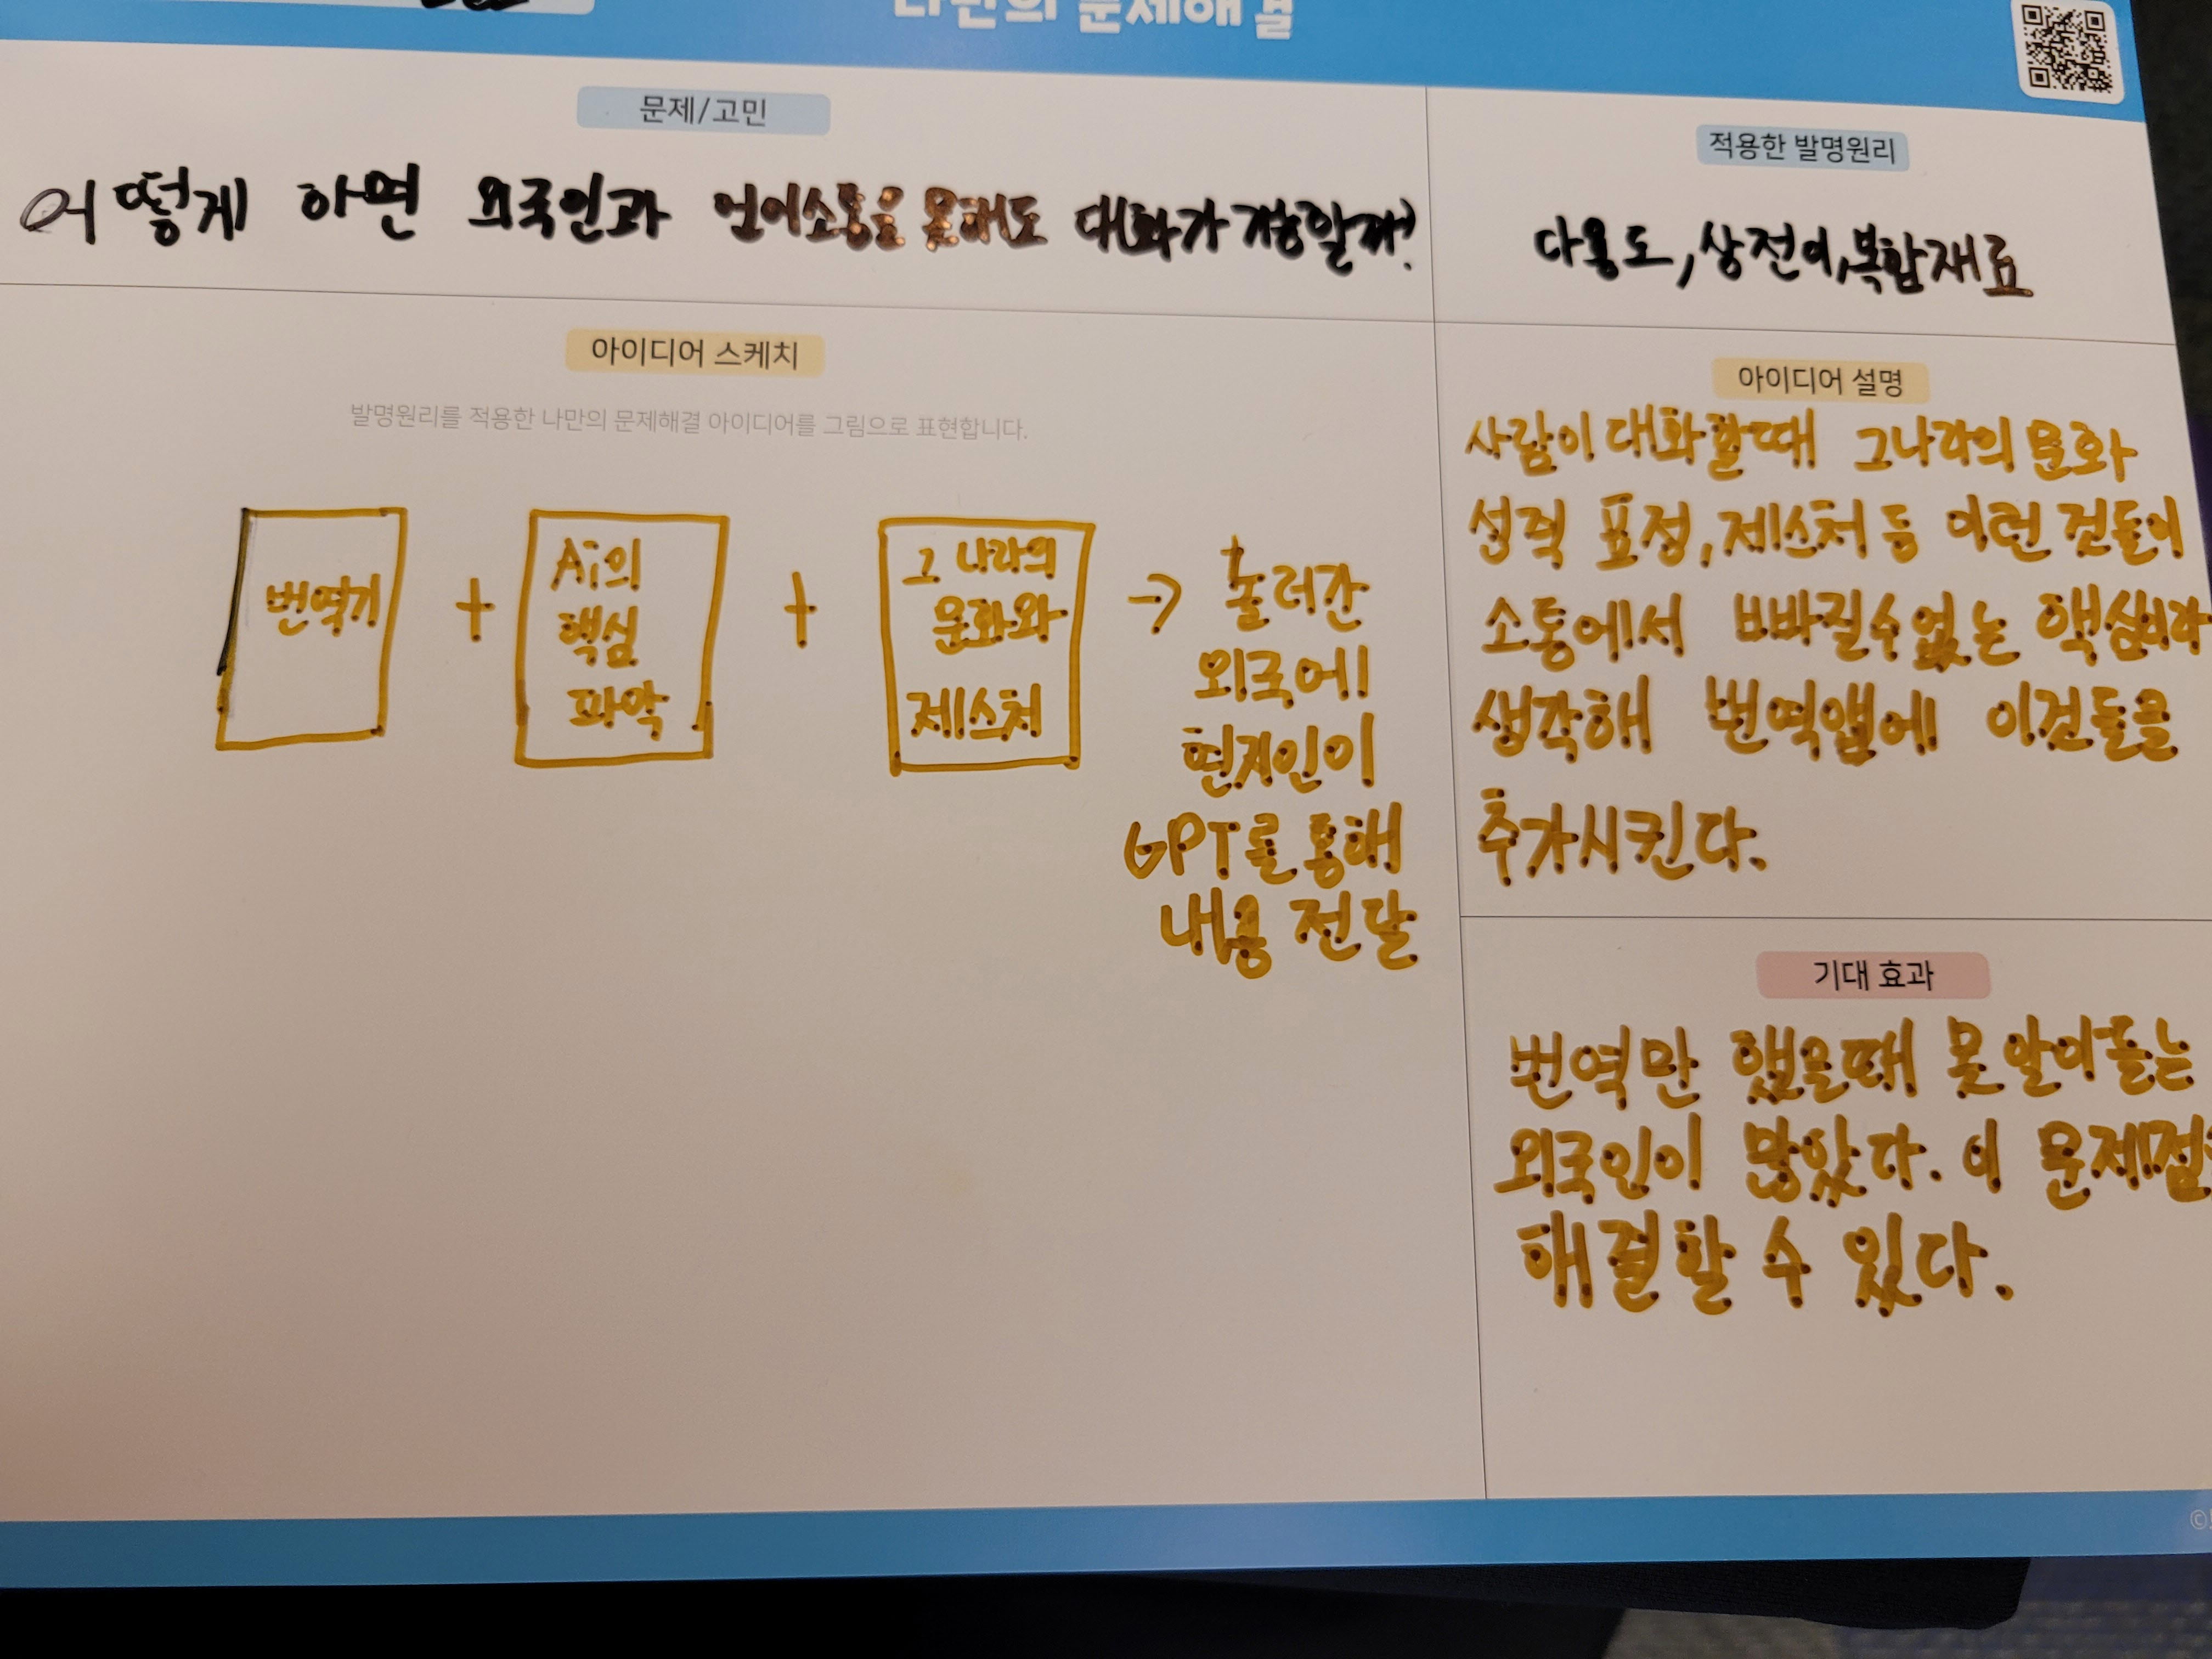 나만의 문제해결
문제/고민
어떻게 하면 외국인과 언어소통을 못해도 대화가 가능할까?
적용한 발명원리
다용도, 상전이, 복합재료
아이디어 스케치
발명원리를 적용한 나만의 문제해결 아이디어를 그림으로 표현합니다.
번역기
+
Ai의
핵심
파악
+
그 나라의
문화와
제스처
→
놀러간
외국에
현지인이
GPT를 통해
내용 전달
아이디어 설명
사람이 대화할때 그나라의 문화
성격 표정, 제스처 등 이런 것들이
소통에서 빠질수 없는 핵심이라
생각해 번역앱에 이것들을
추가시킨다.
기대 효과
번역만 했을때 못 알아듣는
외국인이 많았다. 이 문제점
해결할 수 있다.
©